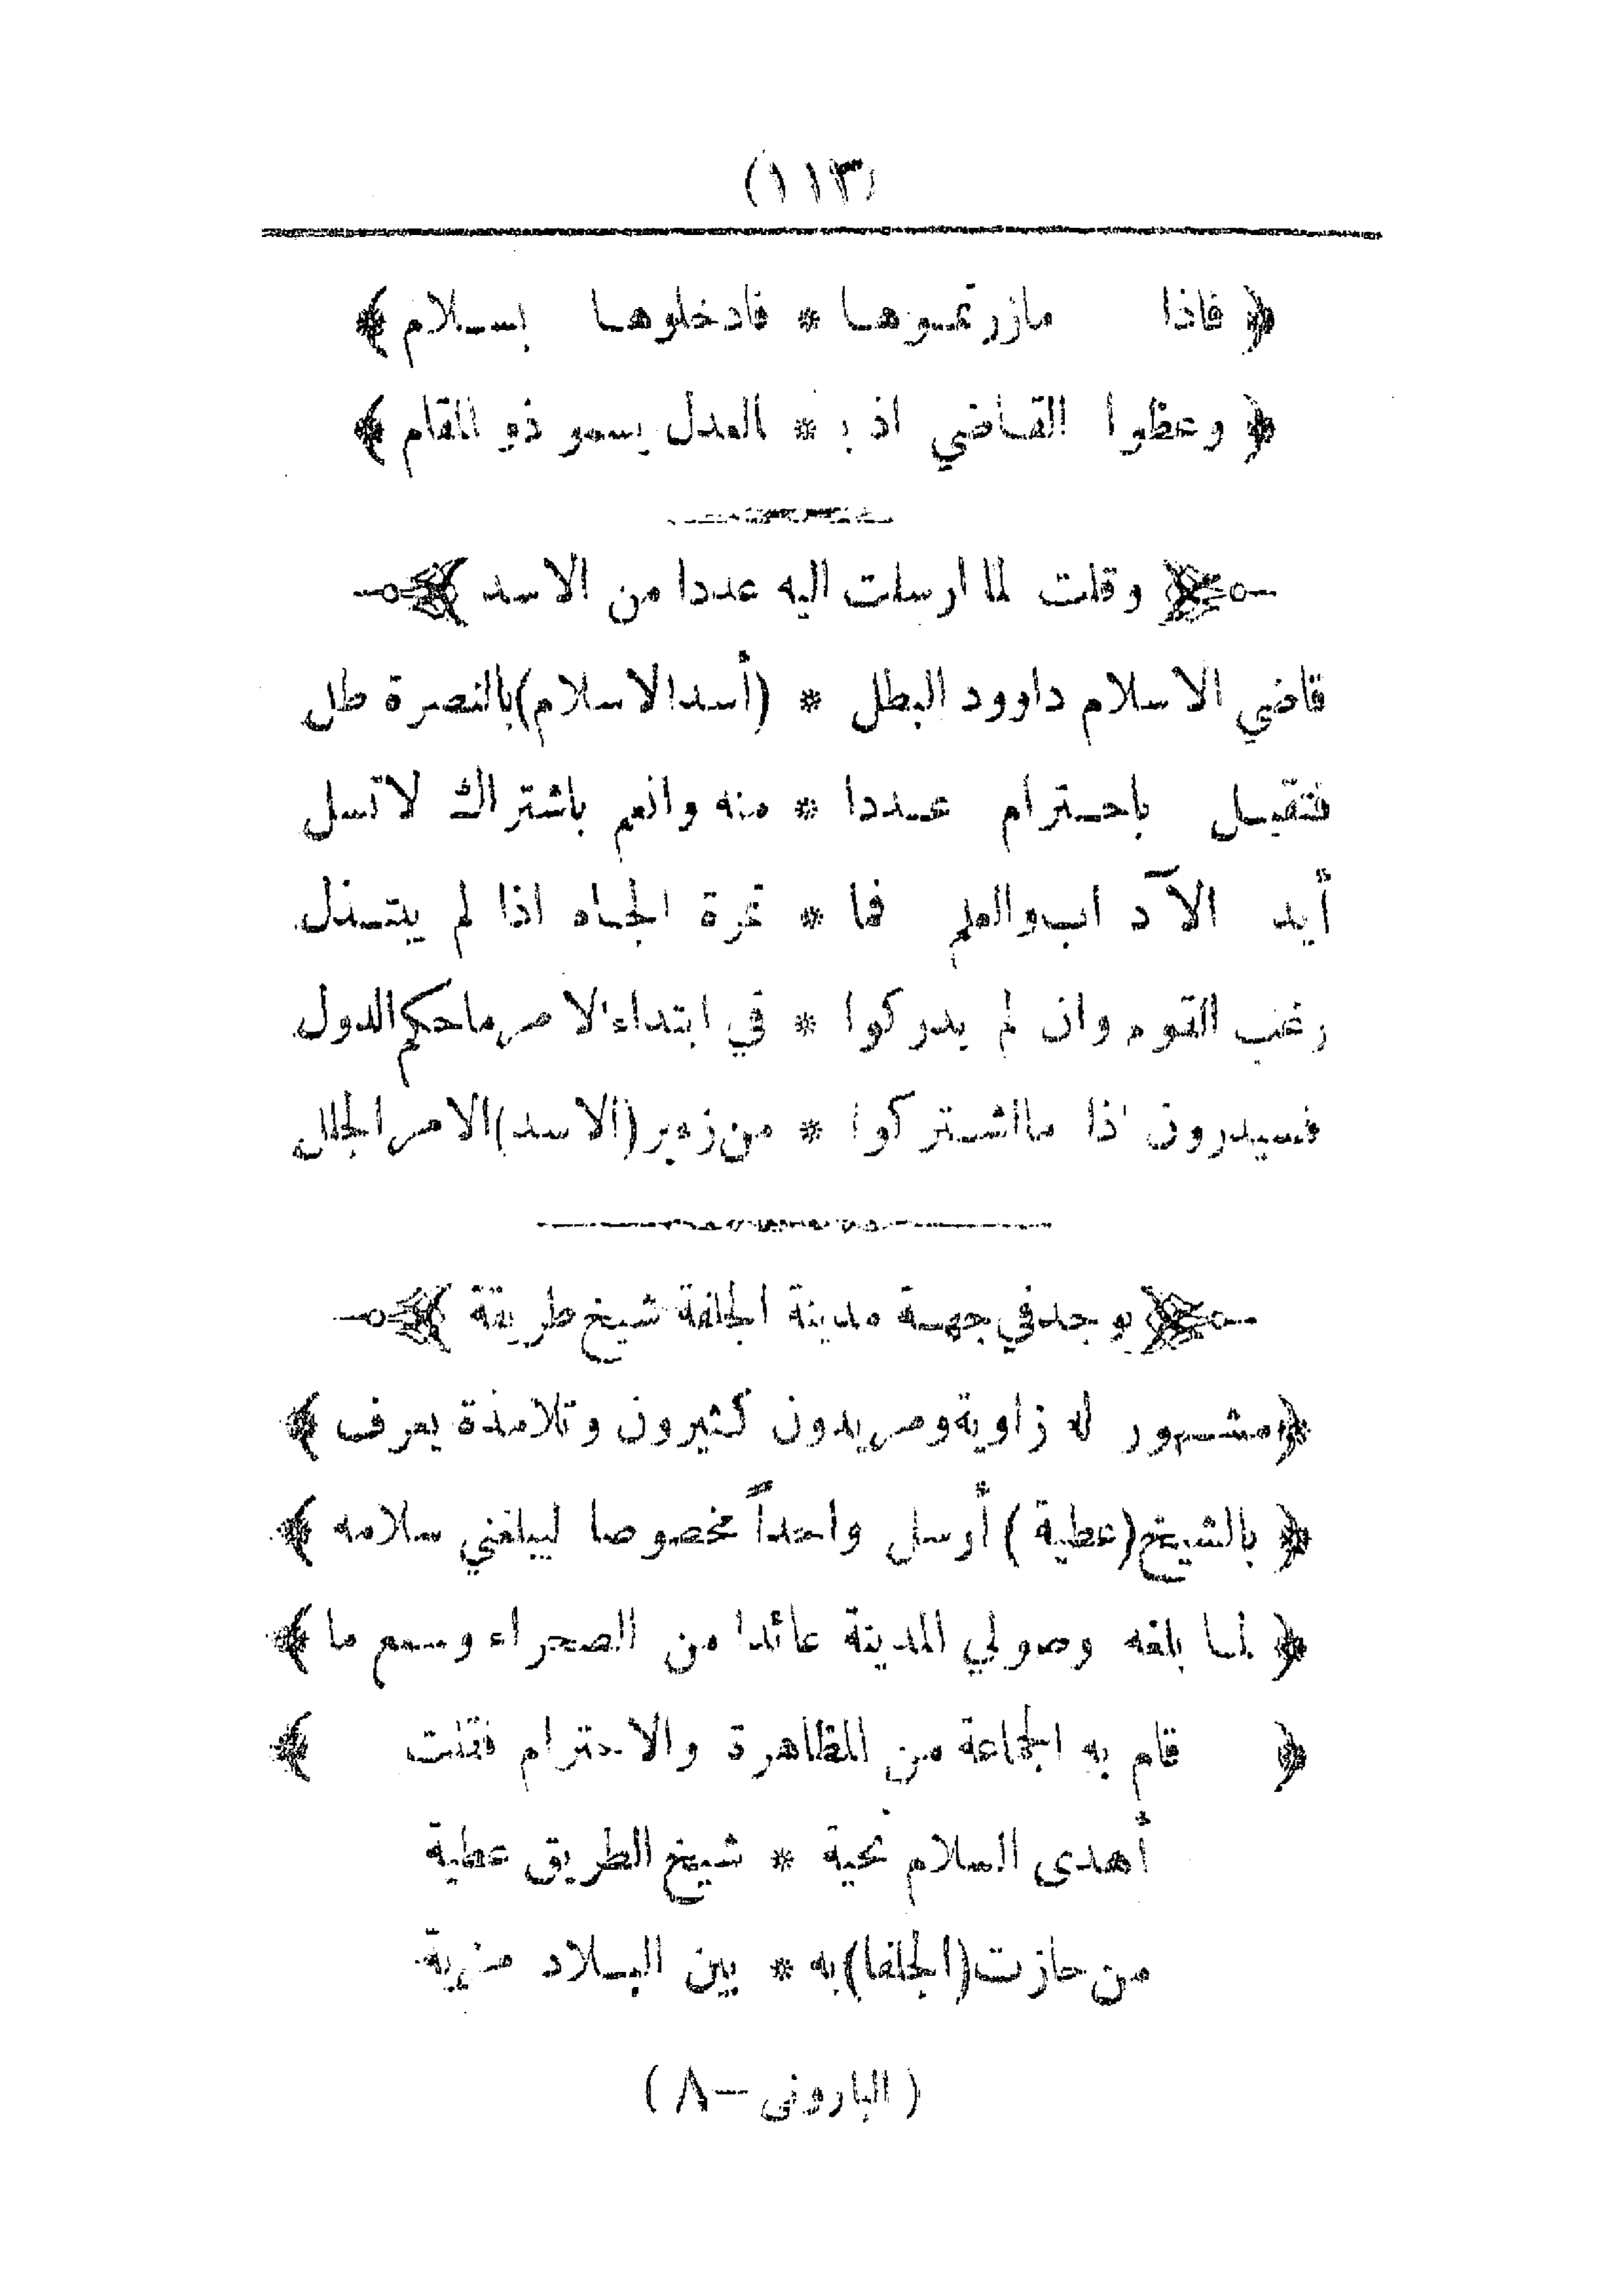 (١١٣)
﴿ فاذا مازرتموها * فادخلوها بسلام ﴾
﴿ وعظوا القاضي اذ بـ * العدل يسمو ذو المقام ﴾
﴿ وقلت لما ارسلت اليه عددا من الاسد ﴾
قاضي الاسلام داوود البطل * (أسد الاسلام) بالنصرة طل
فتقبل باحترام عددا * منه وانعم باشتراك لا تسل
أيد الآداب والعلم فما * ثمرة الجاه اذا لم يبتذل
رغب القوم وان لم يدركوا * في ابتداء الامر ما حكم الدول
فسيدرون اذا ما اشتركوا * من زءير (الاسد) الامر الجلل
﴿ يوجد في جهة مدينة الجلفة شيخ طريقة ﴾
﴿ مشهور له زاوية ومريدون كثيرون وتلامذة يعرف ﴾
﴿ بالشيخ (عطية) أرسل واحداً مخصوصا ليبلغني سلامه ﴾
﴿ لما بلغه وصولي المدينة عائدا من الصحراء وسمع ما ﴾
﴿ قام به الجماعة من المظاهرة والاحترام فقلت ﴾
أهدى السلام تحية * شيخ الطريق عطية
من حازت (الجلفا) به * بين البلاد مزية
( البارونى — ٨ )